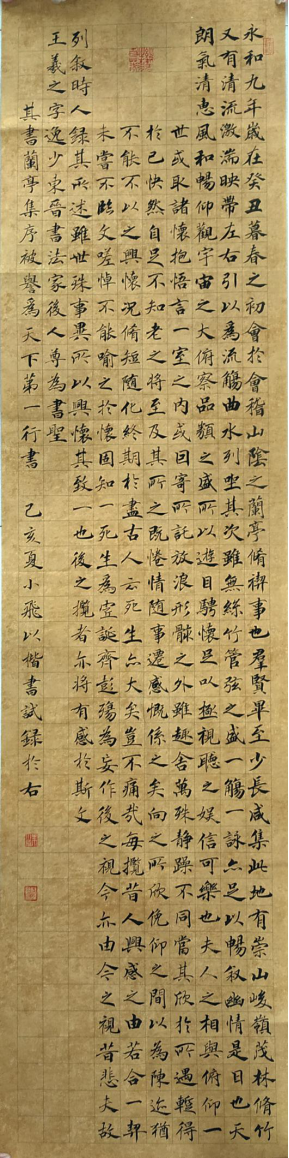 永和九年歲在癸丑暮春之初會於會稽山陰之蘭亭脩禊事也羣賢畢至少長咸集此地有崇山峻嶺茂林脩竹
又有清流激湍映帶左右引以為流觴曲水列坐其次雖無絲竹管弦之盛一觴一詠亦足以暢敘幽情是日也天
朗氣清惠風和暢仰觀宇宙之大俯察品類之盛所以遊目騁懷足以極視聽之娛信可樂也夫人之相與俯仰一
世或取諸懷抱悟言一室之內或因寄所託放浪形骸之外雖趣舍萬殊靜躁不同當其欣於所遇暫得
於己快然自足不知老之將至及其所之既惓情隨事遷感慨係之矣向之所欣俛仰之間以為陳迹猶
不能不以之興懷況脩短隨化終期於盡古人云死生亦大矣豈不痛哉每攬昔人興感之由若合一契
未嘗不臨文嗟悼不能喻之於懷固知一死生為虛誕齊彭殤為妄作後之視今亦由今之視昔悲夫故
列敘時人錄其所述雖世殊事異所以興懷其致一也後之攬者亦將有感於斯文
王羲之字逸少東晉書法家後人尊為書聖
其書蘭亭集序被譽為天下第一行書 己亥夏小飛以楷書試錄於右